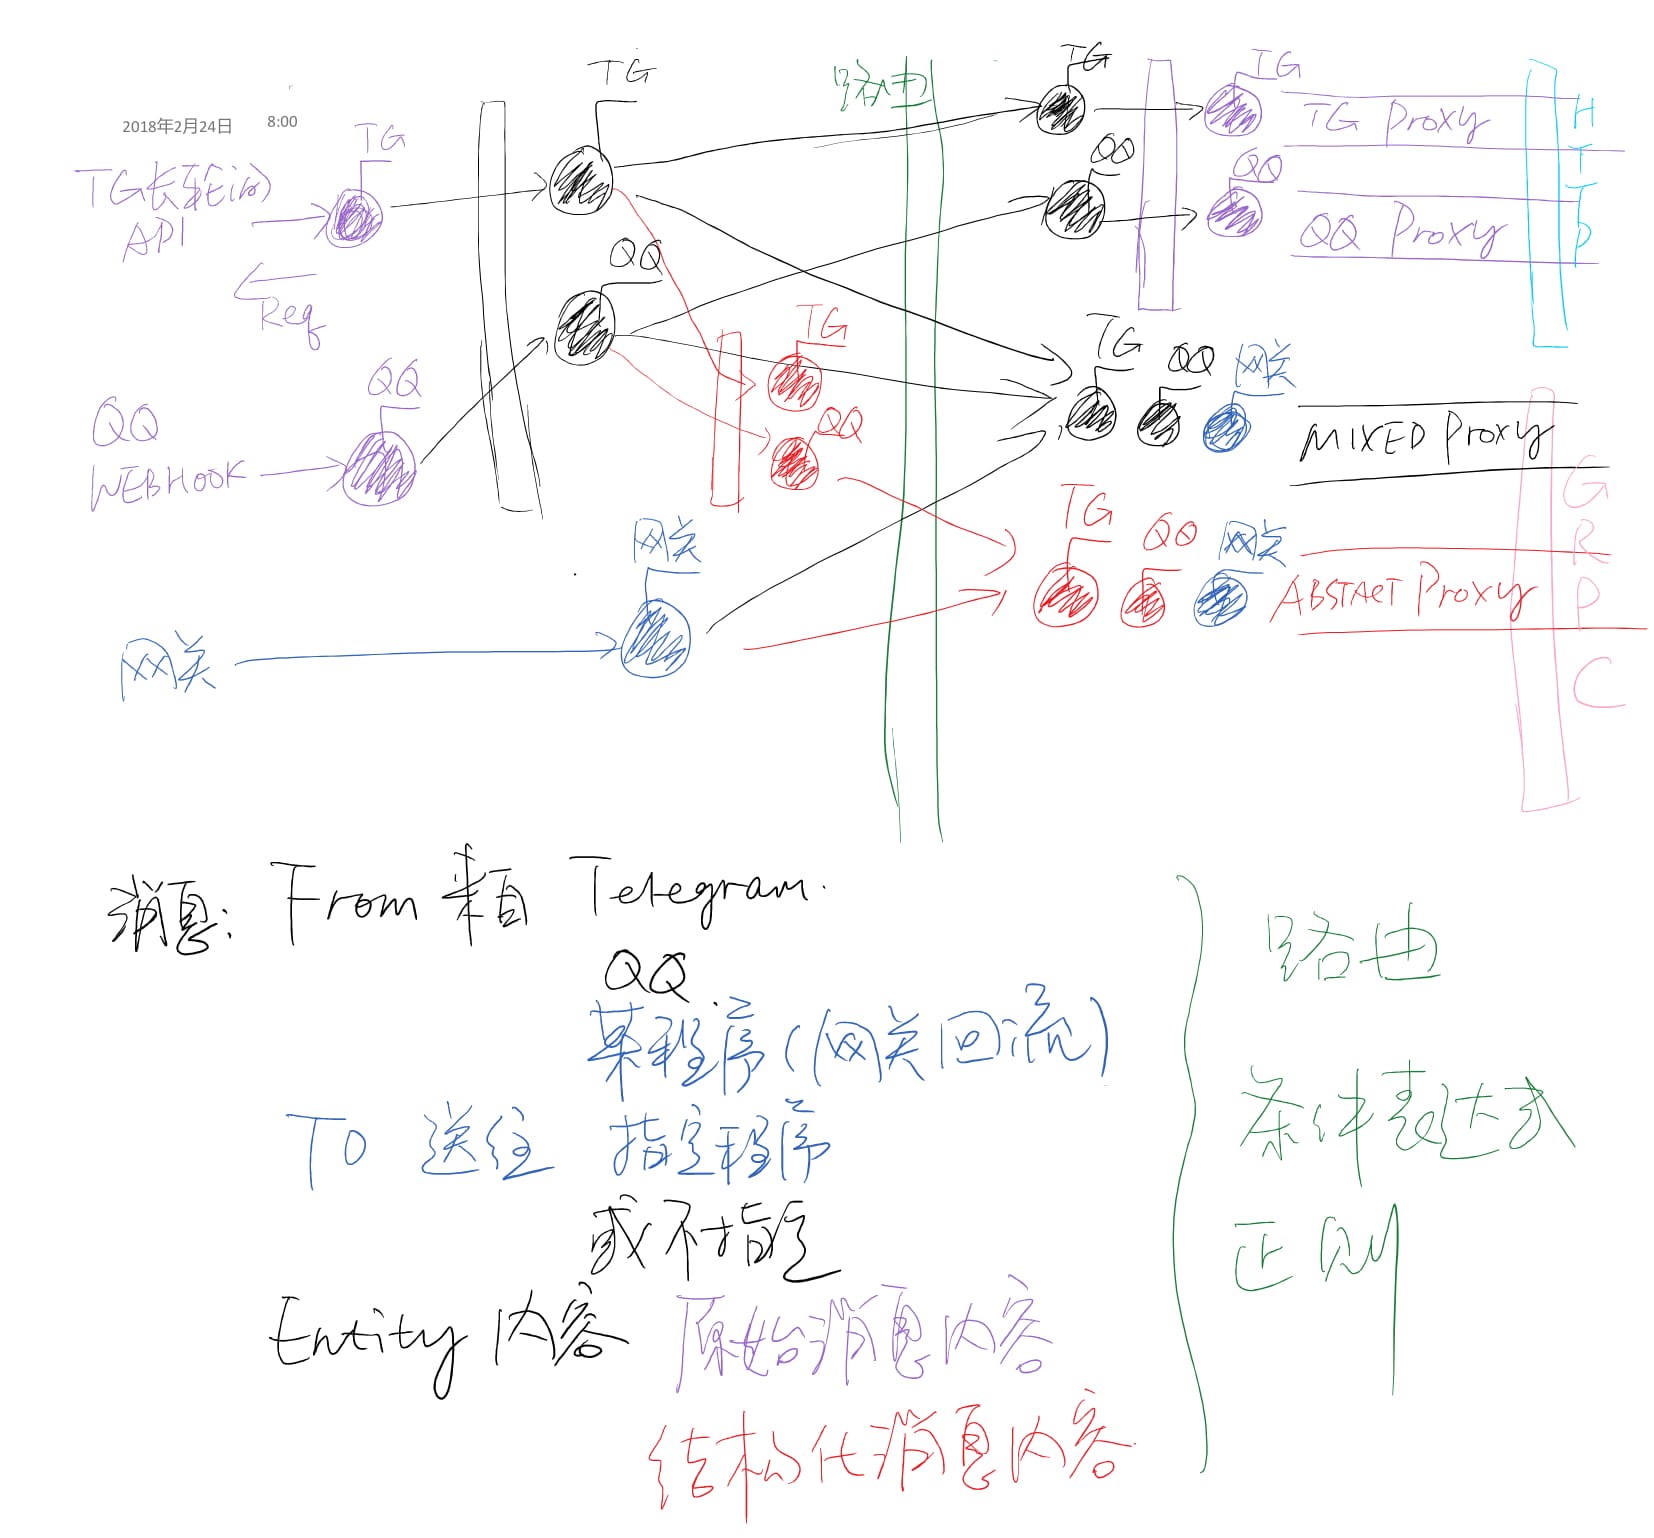 2018年2月24日 8:00
TG长轮询
API
Req
TG
QQ
WEBHOOK
QQ
网关
TG
QQ
网关
TG
QQ
路由
TG
QQ
TG
TG Proxy
QQ
QQ Proxy
HTTP
TG QQ 网关
MIXED Proxy
TG QQ 网关
ABSTAET Proxy
GRPC
消息: From 来自 Telegram.
QQ
某程序(网关回流)
TO 送往 指定程序
或不指定
Entity 内容 原始消息内容
结构化消息内容
路由
条件表达式
正则